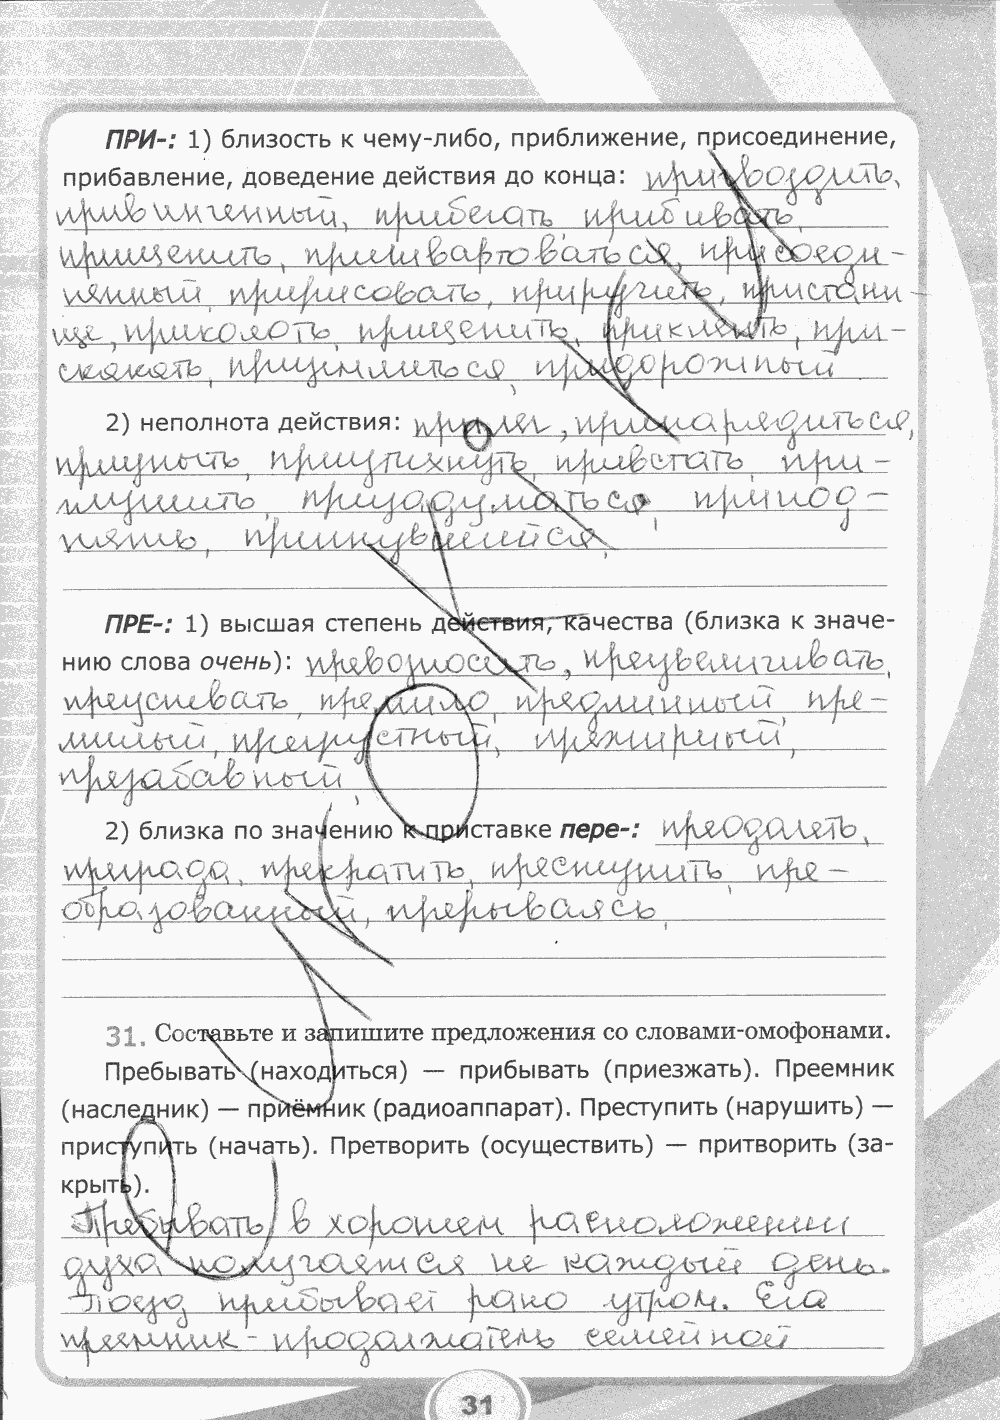 ПРИ-: 1) близость к чему-либо, приближение, присоединение,
прибавление, доведение действия до конца: пригвоздить,
привинченный, прибегать, прибивать,
прицепить, пришвартоваться, присоеди-
нённый, пририсовать, приручить, пристани-
ще, приколоть, прицепить, приклеить, при-
скакать, приземлиться, придорожный
2) неполнота действия: прилёг, принарядиться,
приуныть, приутихнуть, привстать, при-
глушить, призадуматься, припод-
нять, пригнувшийся,
ПРЕ-: 1) высшая степень действия, качества (близка к значе-
нию слова очень): превозносить, преувеличивать,
преуспевать, премило, предлинный, пре-
милый, прегрустный, прежирный,
презабавный,
2) близка по значению к приставке пере-: преодолеть,
преграда, прекратить, преступить, пре-
образованный, прерываясь,
31. Составьте и запишите предложения со словами-омофонами.
Пребывать (находиться) — прибывать (приезжать). Преемник
(наследник) — приёмник (радиоаппарат). Преступить (нарушить) —
приступить (начать). Претворить (осуществить) — притворить (за-
крыть).
Пребывать в хорошем расположении
духа получается не каждый день.
Поезд прибывает рано утром. Его
преемник - продолжатель семейной
31